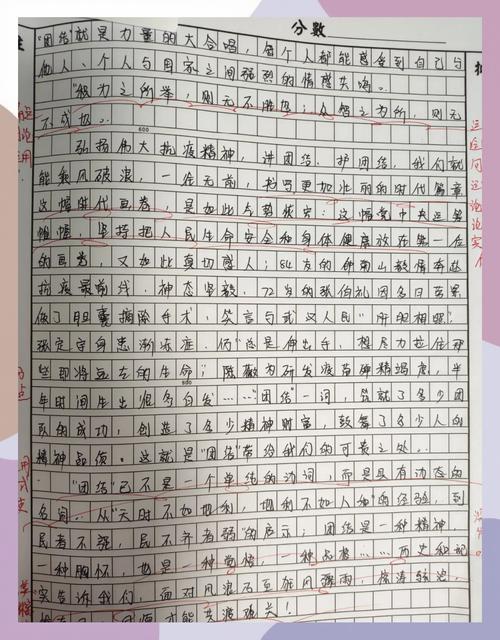 分数
"团结"就是力量的大合唱,每个人都能感受到自己与
他人、个人与国家之间强烈的情感共鸣。
"积力之所举,则无不胜也;众智之为所,则无
不成也。
600
弘扬伟大抗疫精神,讲团结、护团结,我们就
能乘风破浪,一往无前,书写更加壮丽的时代篇章
这幅时代画卷,是如此气势恢宏:这幅党中央运筹
帷幄,坚持把人民生命安全和身体健康放在第一位
的画卷,又如此真切感人;84岁的钟南山教授奔赴
抗疫最前线,神态坚毅,72岁的张伯礼因多日劳累
做了胆囊摘除手术,笑言与武汉人民"肝胆相照"
张定宇身患渐冻症,仍"总是伸出手,想尽力拉住那
些即将逝去的生命";陈薇为研发疫苗殚精竭虑,半
800
年时间生出很多白发……"团结"一词,筑就了多少团
队的成功,创造了多少精神财富,鼓舞了多少人的
精神品质。这就是"团结"带给我们的可贵之处。
"团结"已不是一个单纯的动词,而是具有动态的
名词。从"天时不如地利,地利不如人和"的经验,到
民者不强,民不齐者弱"的启示;团结是一种精神,
一种胸怀,也是一种觉悟,一种品格……历史和现
实告诉我们,面对风浪乃至狂风骤雨、惊涛骇浪,
才能共渡难关!